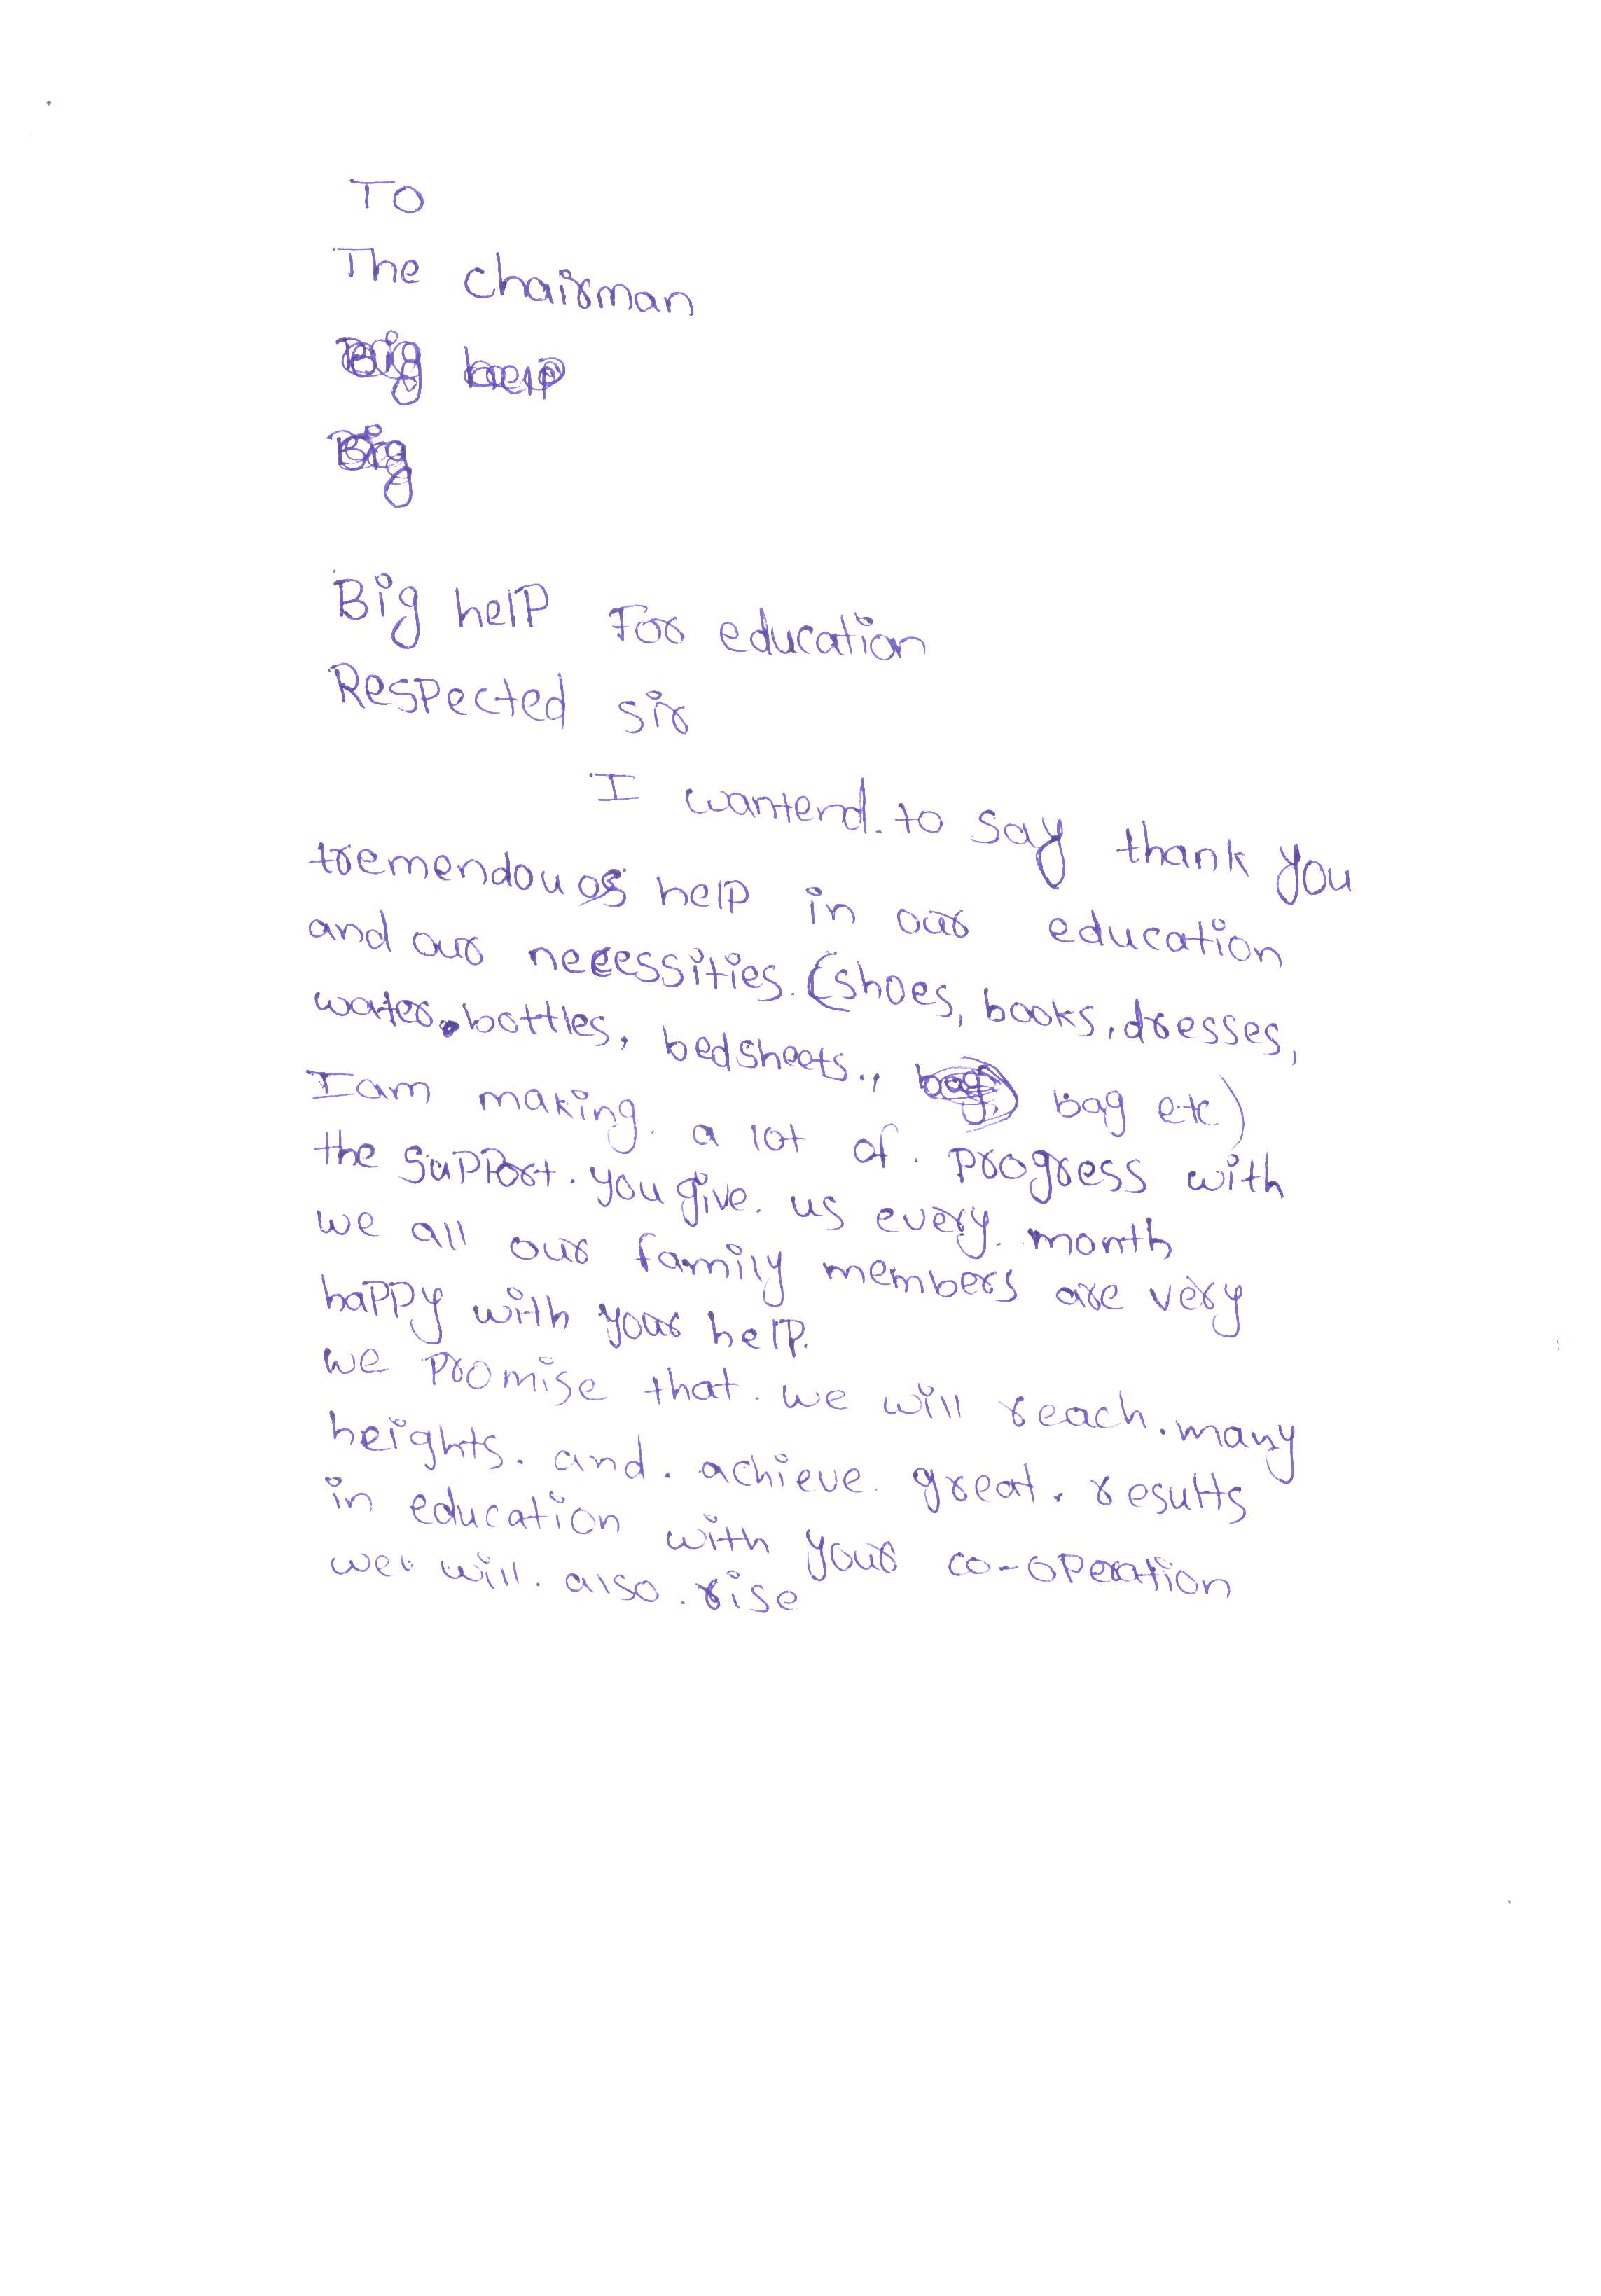 To
The chairman
Big help
Big
Big help For education
Respected sir
I wantend. to say thank you
tremendouos help in our education
and our neeessities. (shoes, books, dresses,
water.bottles, bedsheets., bag bag etc)
I am making. a lot of. progress with
the support. you give. us every. month
we all our family members are very
happy with your help.
we promise that. we will reach. many
heights. and. achieve. great. results
in education with your co-operation
we. will. also. rise